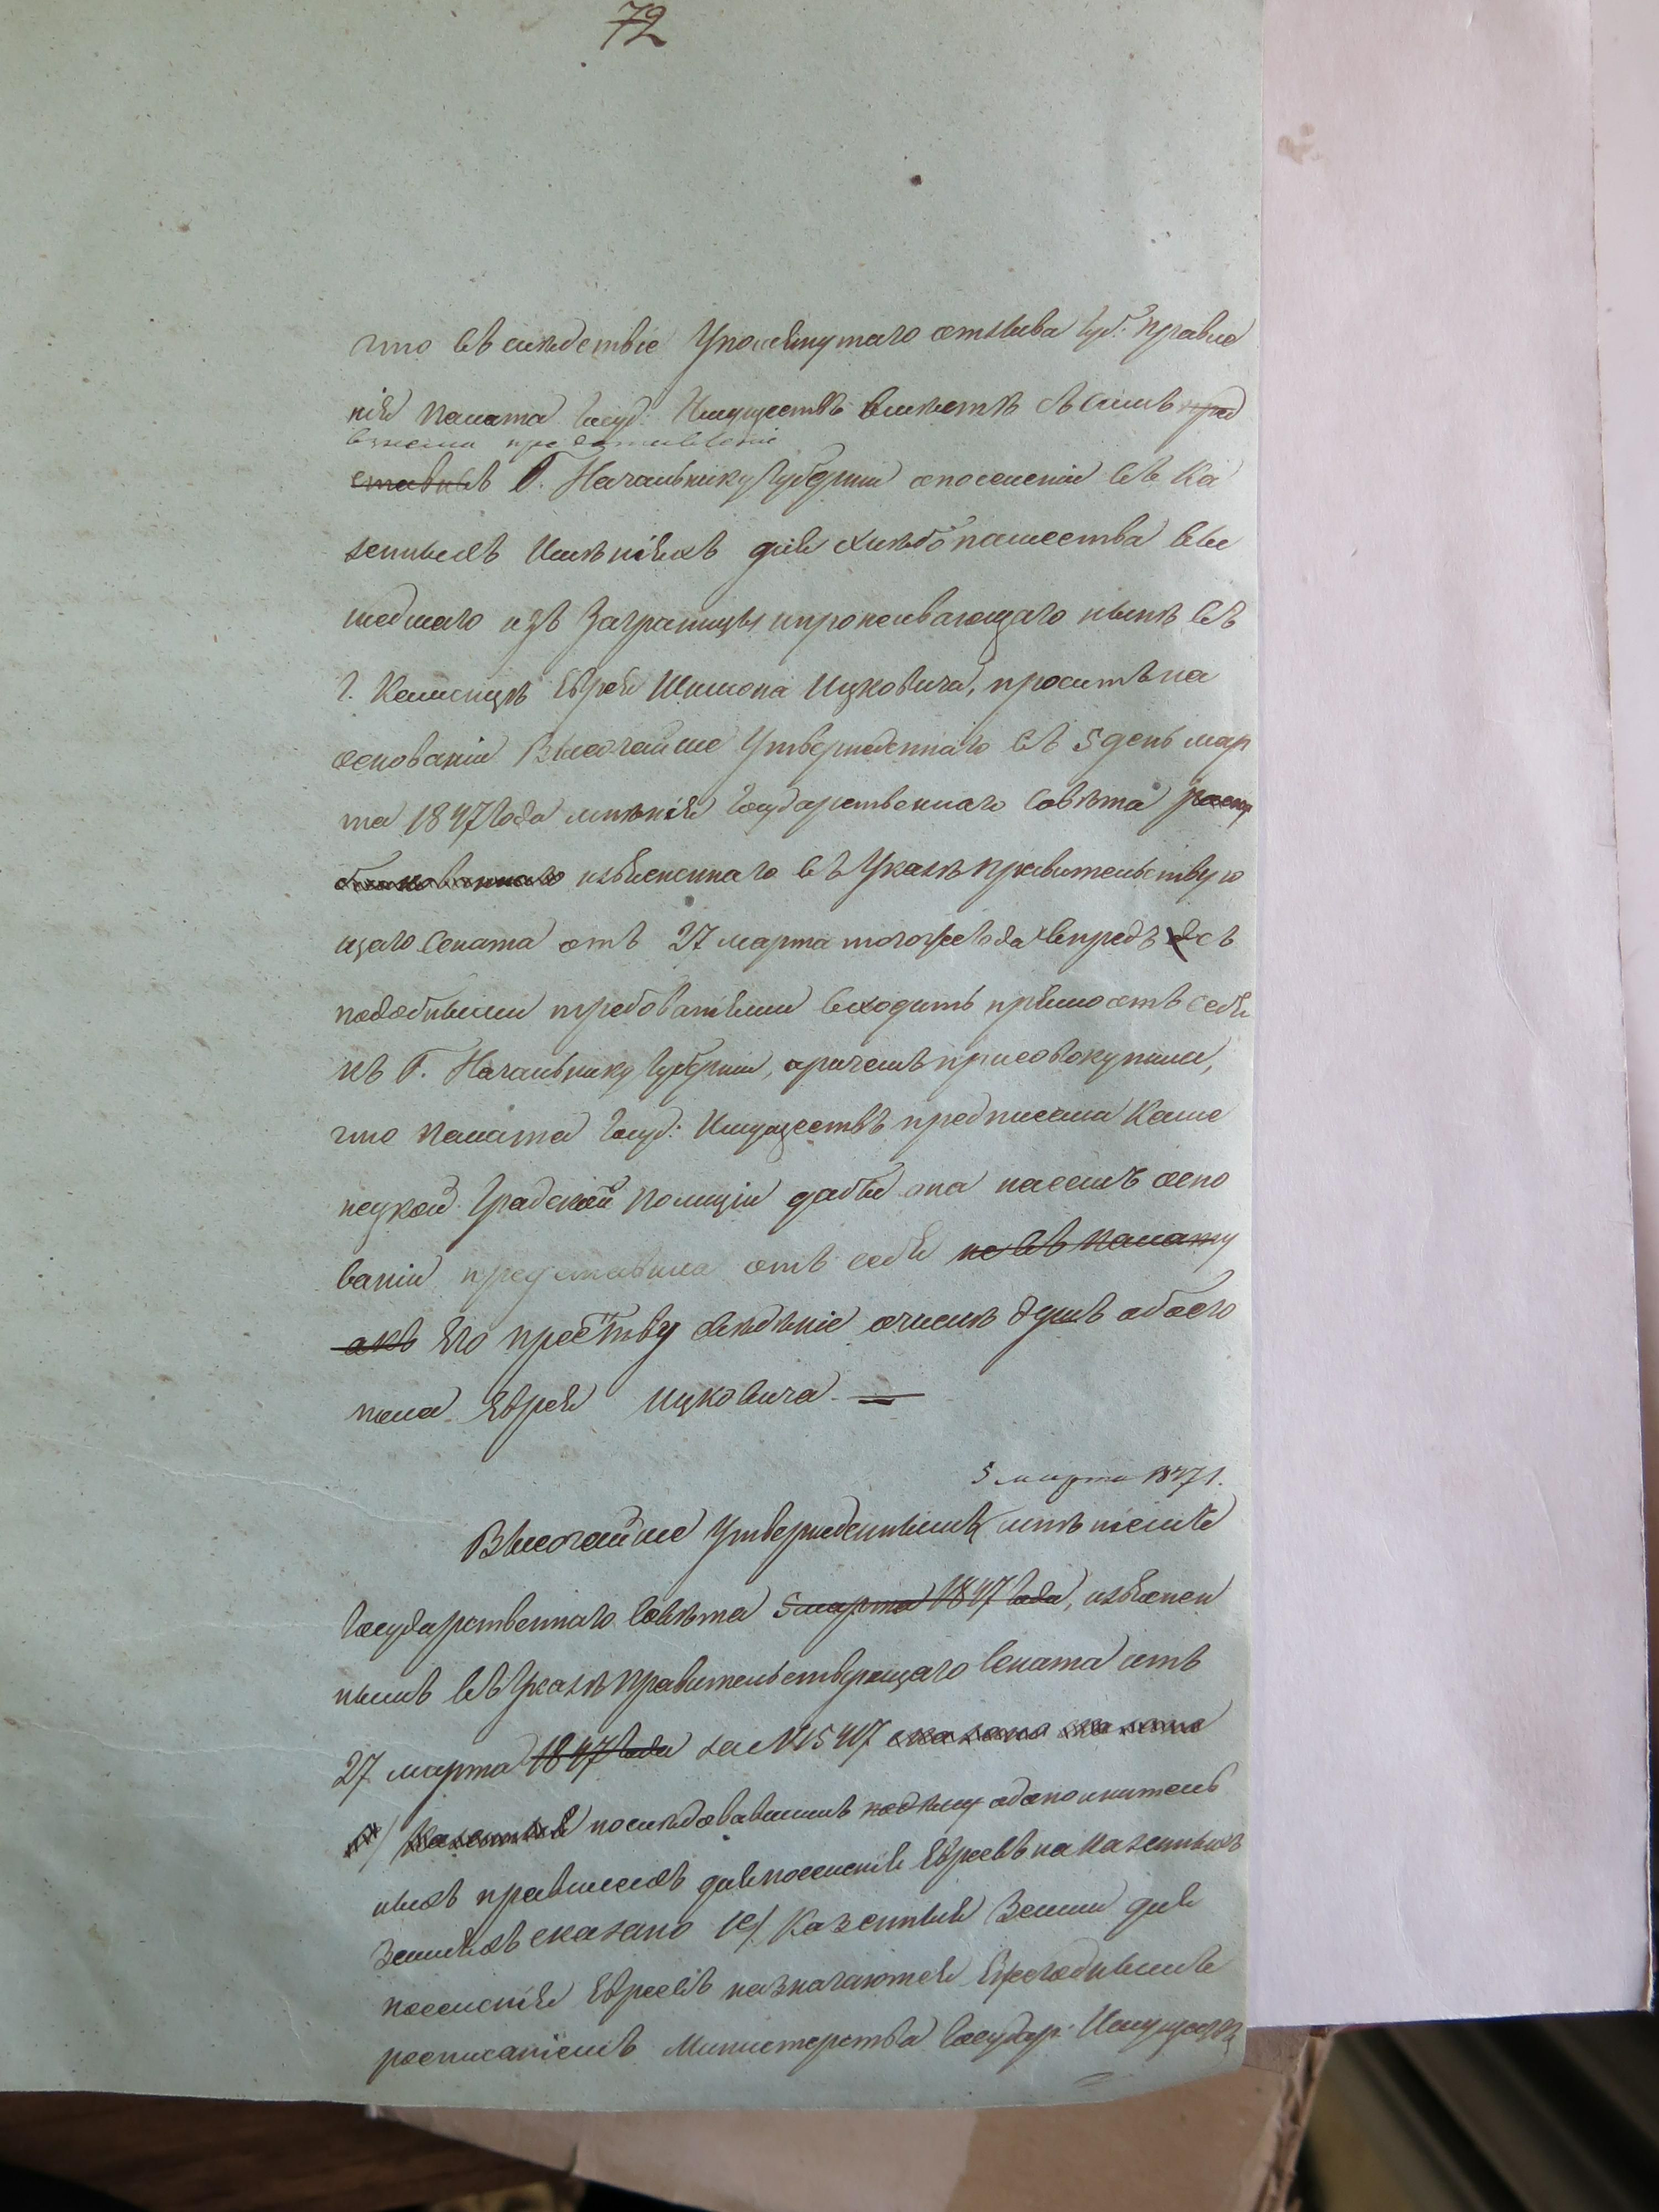 72
что въ следствіе Упомянутаго отзыва Губ: Правле
нія Палата Госуд: Имуществъ вместѣ съ симъ пред
вошла представленіе
ставивъ Г. Начальнику Губерніи опоселеніи въ Ка
зенныхъ Имѣніяхъ для хлѣбопашества вы
шедшаго изъ Заграницы ипроживающаго нынѣ въ
г. Каменцѣ Еврея Шимона Ицковича, проситъ на
основаніи Высочайше Утвержденнаго въ 5 день мар
та 1847 года мнѣнія Государственнаго Совѣта
изъясненнаго въ Указѣ Правительствую
щаго Сената отъ 27 марта тогоже года впредъ съ
подобными требованіями входить прямо отъ себя
къ Г. Начальнику Губерніи, причемъ присовокупила,
что Палата Госуд: Имуществъ предписала Каме
нецкой Градской Полиціи дабы она насемъ осно
ваніи представила отъ себя не въ Палату
а къ Его Прев-тву свѣдѣніе очислѣ душъ обоего
пола Еврея Ицковича. —
5 марта 1847 г.
Высочайше Утвержденнымъ мнѣніемъ
Государственнаго Совѣта 5 марта 1847 года, изъяснен
нымъ въ Указѣ Правительствующаго Сената отъ
27 марта 1847 года за №15417
Казенныя послѣдовавшимъ одополнитель
ныхъ правилахъ для поселенія Евреевъ на Казенныхъ
Земляхъ сказано Казенныя Земли для
поселенія Евреевъ назначаются Ежегоднымъ
росписаніемъ Министерства Государ: Имуществ